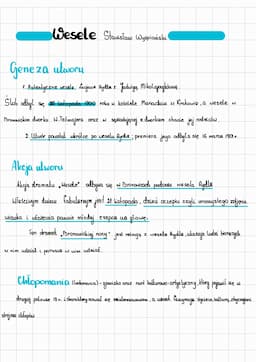 Wesele Stanisław Wyspiański
Geneza utworu
1. Autentyczne wesele Lucjana Rydla z Jadwigą Mikołajczykówną.
Ślub odbył się 20 listopada 1900 roku w kościele Mariackim w Krakowie, a wesele w
Bronowickim dworku W. Tetmajera oraz w sąsiadującej z dworkiem chacie jej rodziców.
2. Utwór powstał wkrótce po weselu Rydla, premiera jego odbyła się 16 marca 1901r.
Akcja utworu
Akcja dramatu „Wesele" odbywa się w Bronowicach podczas wesela Rydla
Właściwym dniem fabularnym jest 21 listopada, dzień oczepin czyli uroczystego zdjęcia
wianka i włożenia pannie młodej czepca na głowę.
Ten dramat „Bronowickiej nocy" jest relacją z wesela Rydla, ukazuje ludzi biorących
w nim udział i panujące w nim
Chłopomania (ludomania) - zjawisko oraz nurt kulturowo-artystyczny, który pojawił się w
drugiej połowie 19w. i charakteryzował się zainteresowaniem, a wśród życiem, kulturą, obyczajami
strojem chłopów